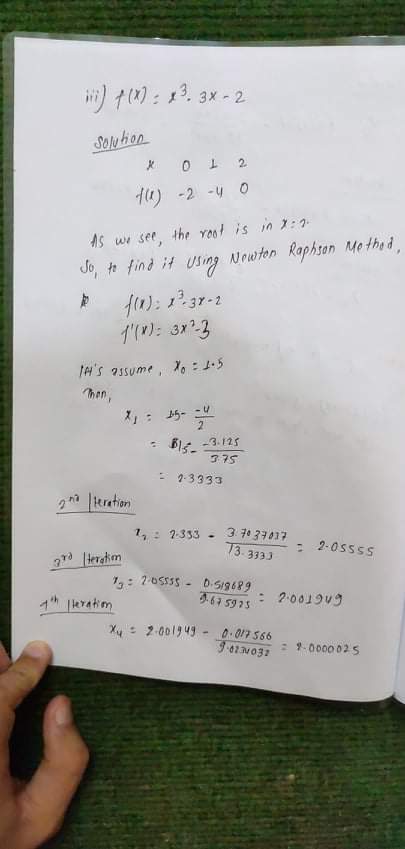 iii) f(x) = x³ - 3x - 2
Solution
x 0 1 2
f(x) -2 -4 0
As we see, the root is in x = 2.
So, to find it using Newton Raphson Method,
f(x) = x³ - 3x - 2
f'(x) = 3x² - 3
let's assume, x₀ = 1.5
Then,
x₁ = 1.5 - -4/2
= 1.5 - -3.125/3.75
= 2.3333
2nd Iteration
x₂ = 2.333 - 3.7037037/13.3333 = 2.05555
3rd Iteration
x₃ = 2.05555 - 0.518689/9.675925 = 2.001949
4th Iteration
x₄ = 2.001949 - 0.017566/9.0234032 = 2.0000025